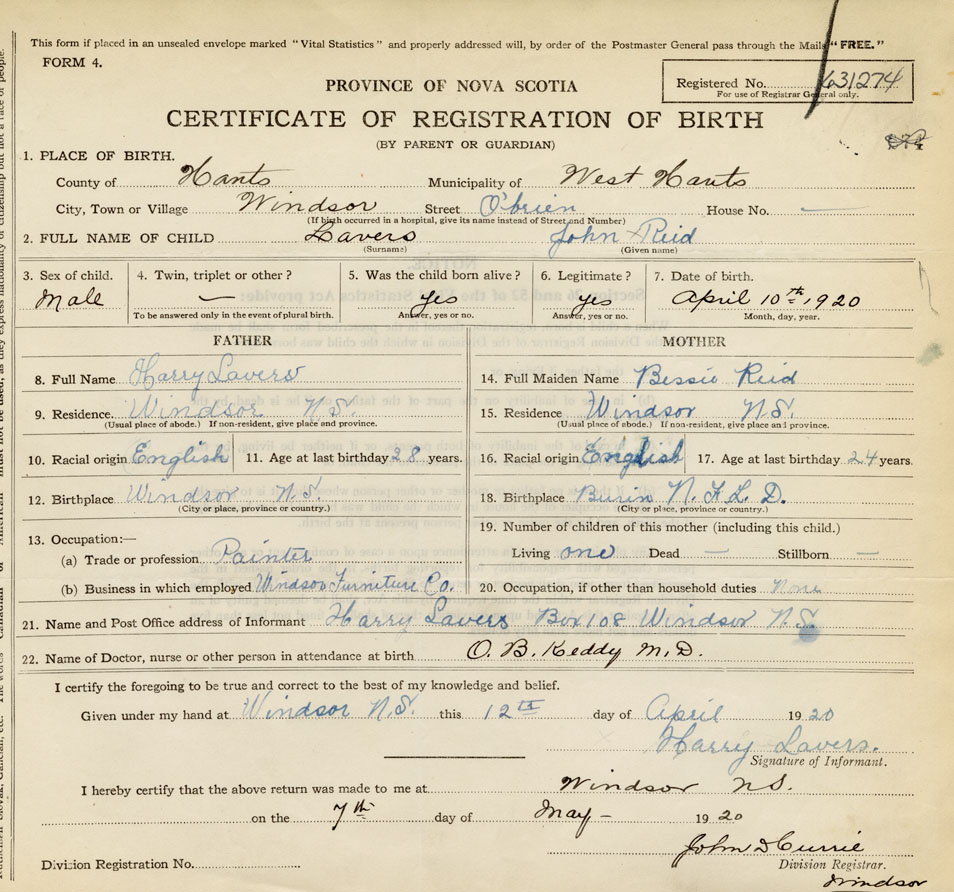 This form if placed in an unsealed envelope marked "Vital Statistics" and properly addressed will, by order of the Postmaster General pass through the Mails "FREE."
FORM 4.
PROVINCE OF NOVA SCOTIA
Registered No. 631274
For use of Registrar General only.
CERTIFICATE OF REGISTRATION OF BIRTH
(BY PARENT OR GUARDIAN)
1. PLACE OF BIRTH.
County of Hants Municipality of West Hants
City, Town or Village Windsor Street O'brien House No. —
(If birth occurred in a hospital, give its name instead of Street and Number)
2. FULL NAME OF CHILD Lavers John Reid
(Surname) (Given name)
3. Sex of child. 4. Twin, triplet or other? 5. Was the child born alive? 6. Legitimate? 7. Date of birth.
Male — yes yes April 10th 1920
To be answered only in the event of plural birth. Answer, yes or no. Answer, yes or no. Month, day, year.
FATHER MOTHER
8. Full Name Harry Lavers 14. Full Maiden Name Bessie Reid
9. Residence. Windsor N.S. 15. Residence Windsor N.S.
(Usual place of abode.) If non-resident, give place and province. (Usual place of abode.) If non-resident, give place and province.
10. Racial origin English 11. Age at last birthday 28 years. 16. Racial origin English 17. Age at last birthday 24 years.
12. Birthplace Windsor N.S. 18. Birthplace Burin N.F.L.D.
(City or place, province or country.) (City or place, province or country.)
13. Occupation:— 19. Number of children of this mother (including this child.)
(a) Trade or profession Painter Living one Dead — Stillborn —
(b) Business in which employed Windsor Furniture Co. 20. Occupation, if other than household duties None
21. Name and Post Office address of Informant Harry Lavers Box 108 Windsor N.S.
22. Name of Doctor, nurse or other person in attendance at birth O. B. Keddy M.D.
I certify the foregoing to be true and correct to the best of my knowledge and belief.
Given under my hand at Windsor N.S. this 12th day of April 1920
Harry Lavers.
Signature of Informant.
I hereby certify that the above return was made to me at Windsor NS.
on the 7th day of May – 1920
John D Currie
Division Registration No. Division Registrar.
Windsor